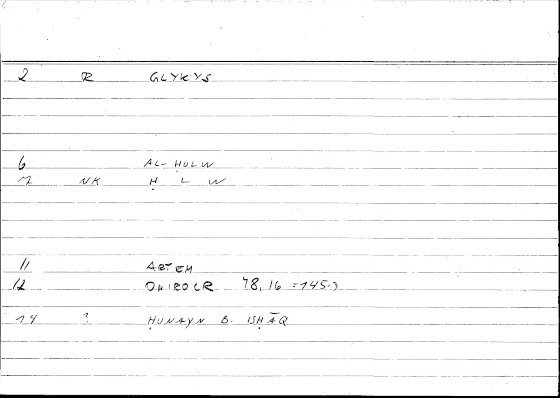 2 R GLYKYS
6 AL-ḤULW
7 NK Ḥ L W
11 ARTEM
12 ONIROCR 78,16 =145.
14 ? ḤUNAYN B. ISḤĀQ